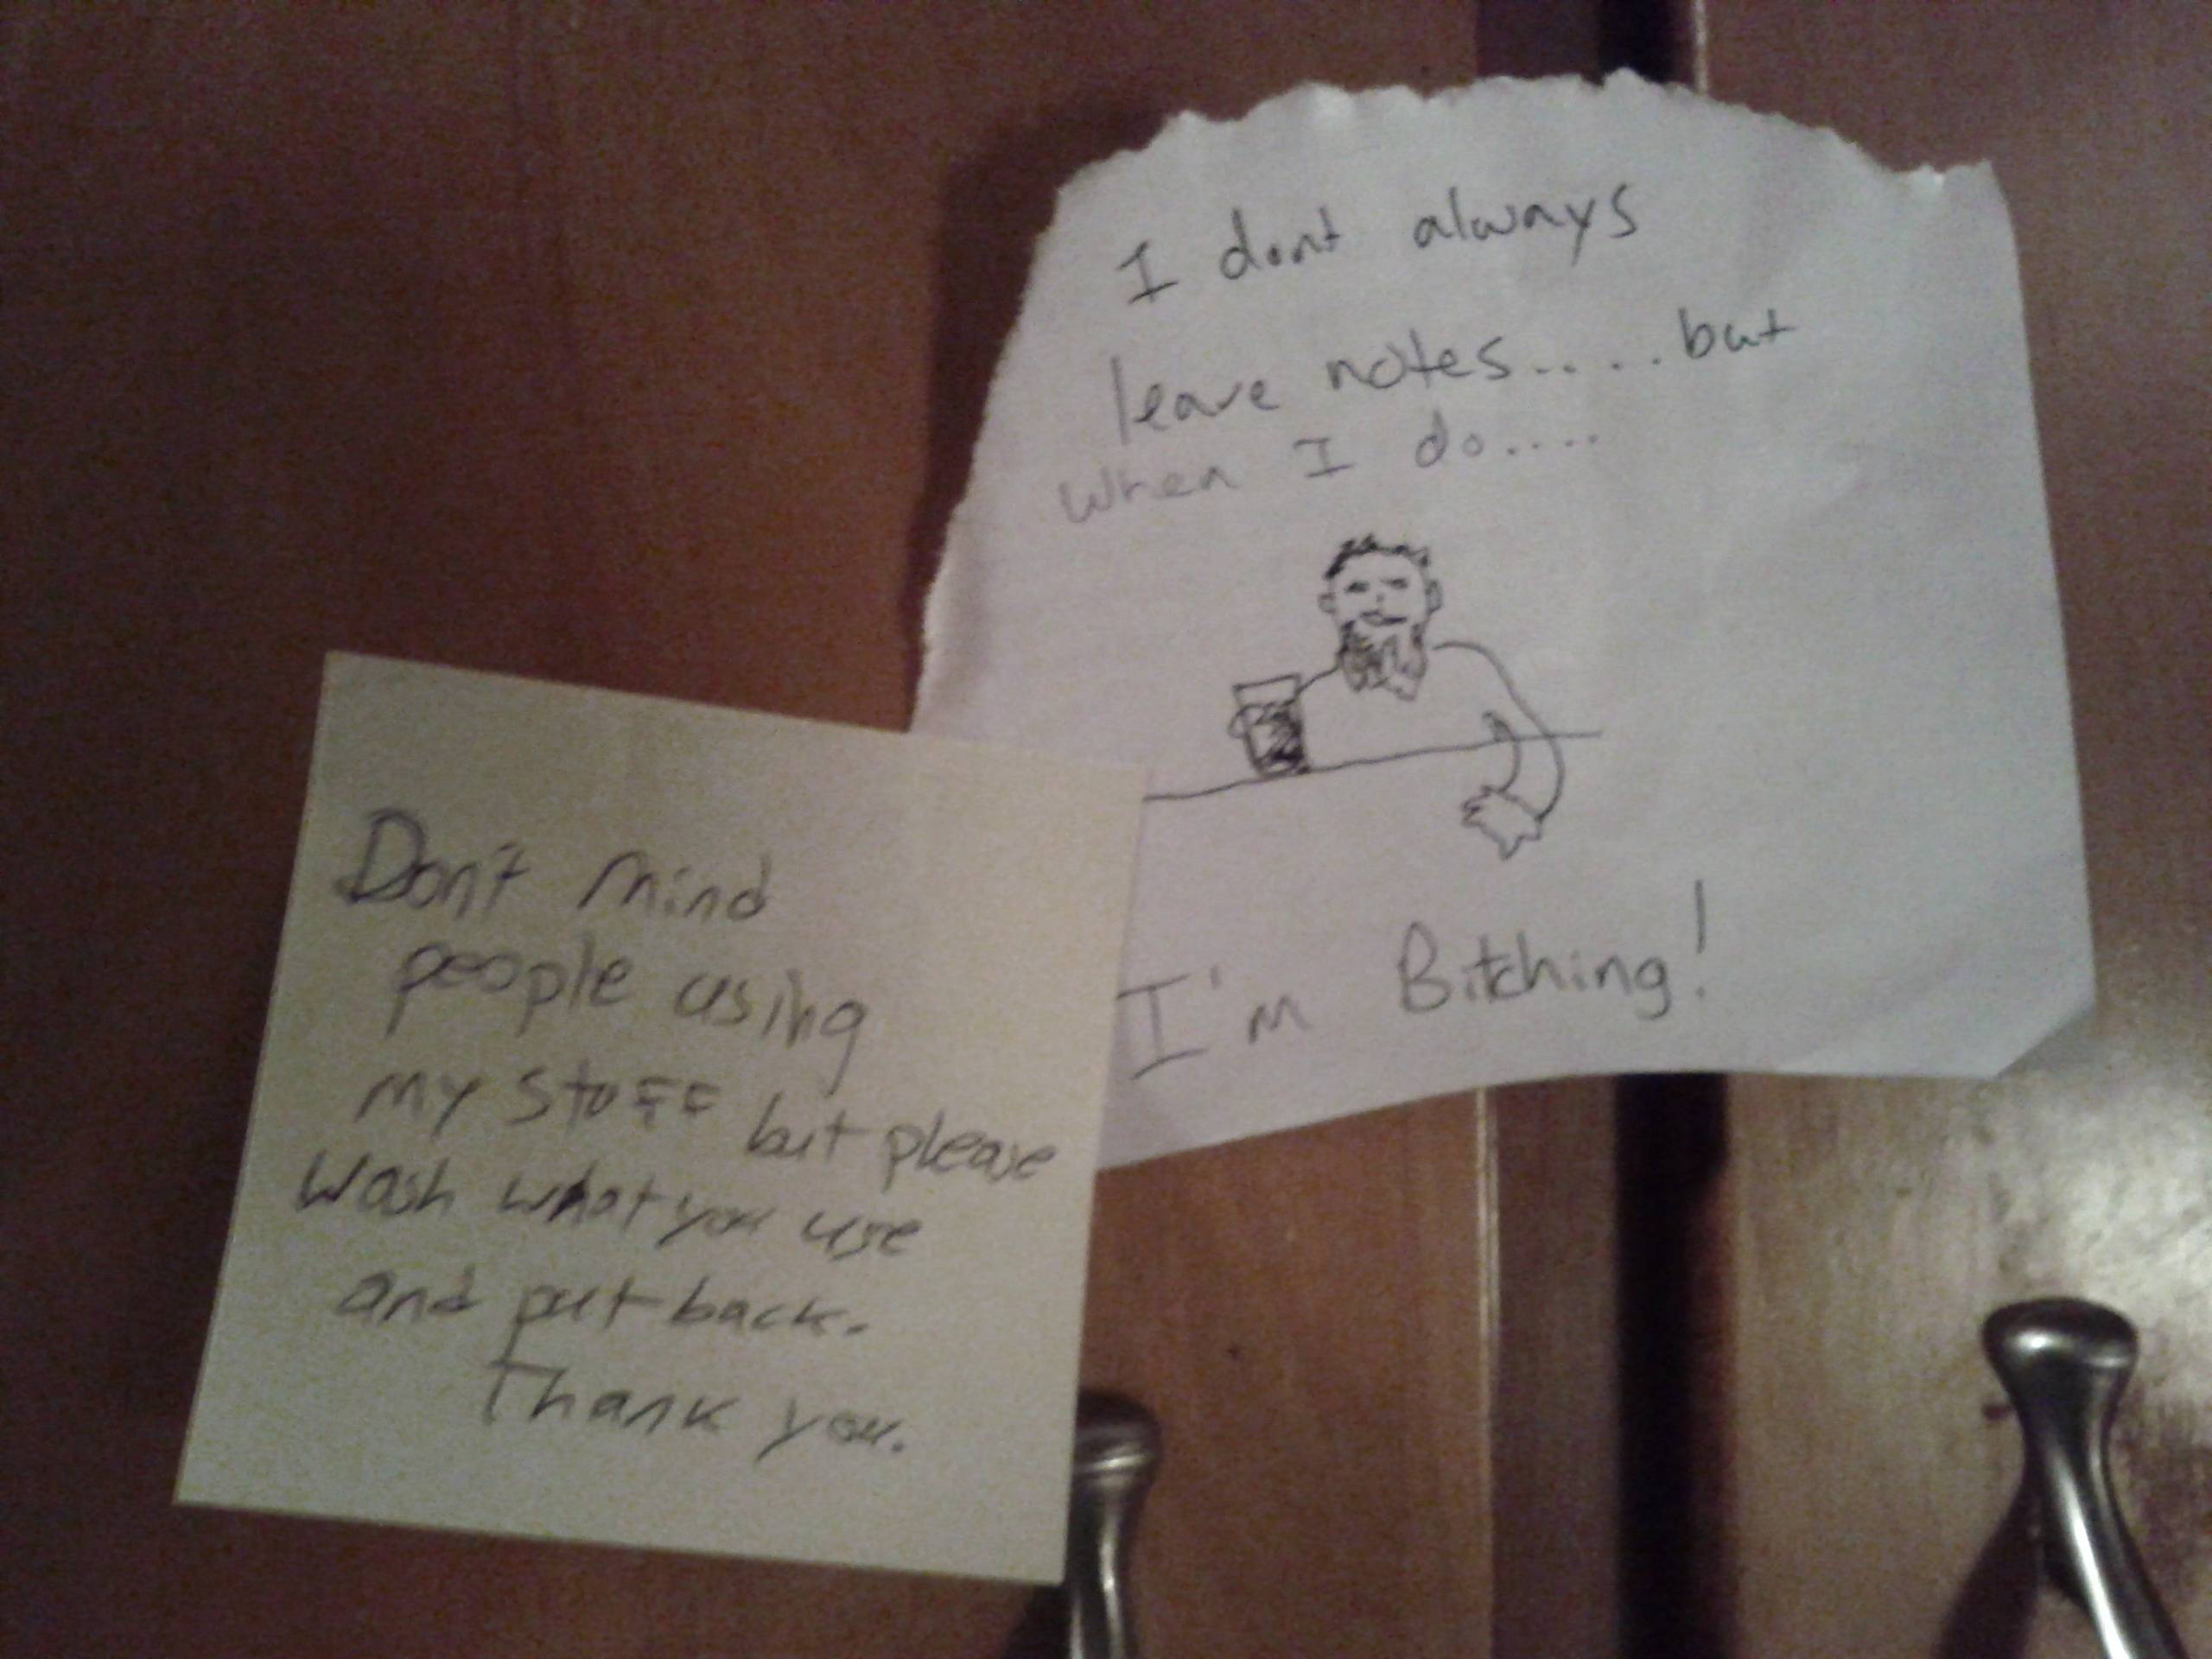 I dont always
leave notes.....but
when I do....
I'm Bitching!
Don't mind
people using
my stuff but please
wash what you use
and put back.
Thank you.